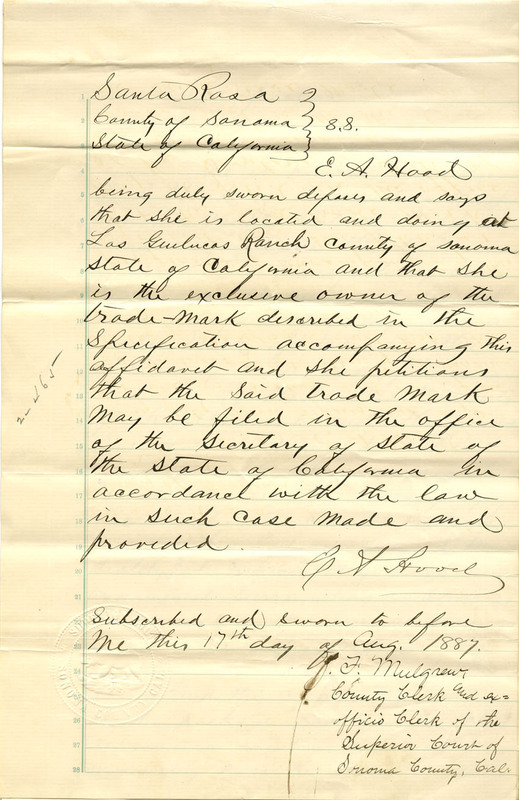 Santa Rosa
County of Sonoma } S.S.
State of California
E. A. Hood
being duly sworn deposes and says
that she is located and doing at
Los Guilucos Ranch County of Sonoma
State of California and that she
is the exclusive owner of the
trade-mark described in the
Specification accompanying this
affidavet and she petitions
that the said trade mark
may be filed in the office
of the Secretary of State of
the State of California in
accordance with the law
in such case made and
provided.
E A Hood
Subscribed and sworn to before
me this 17th day of Aug. 1887.
J. F. Mulgrew,
County Clerk and ex-
officio Clerk of the
Superior Court of
Sonoma County, Cal.